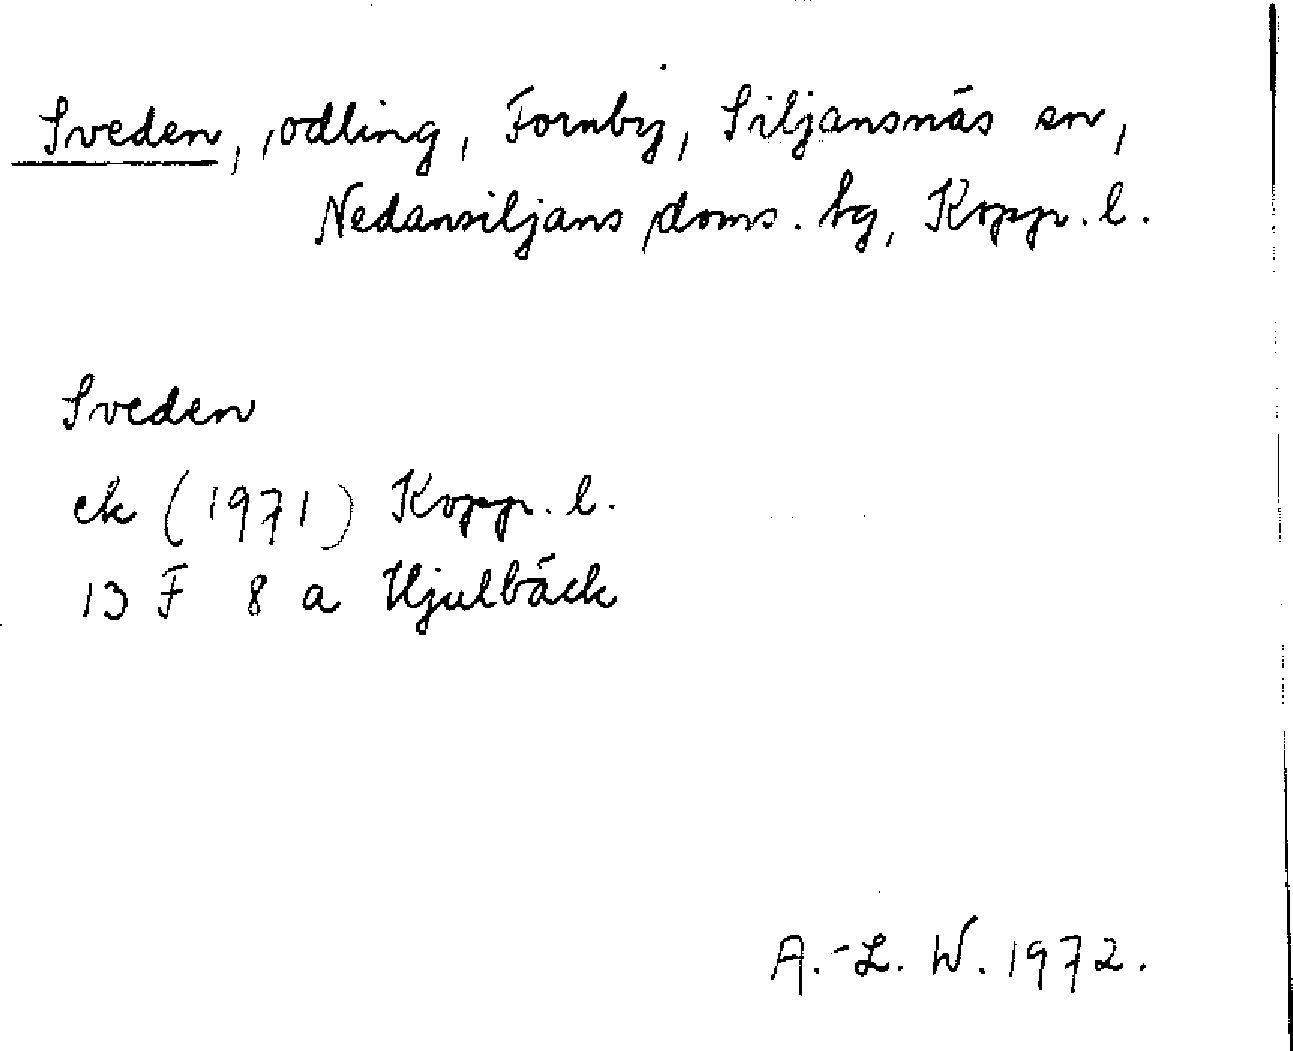 Sveden, odling, Fornby, Siljansnäs sn,
Nedansiljans doms. tg, Kopp. l.
Sveden
ek (1971) Kopp. l.
13 F 8 a Hjulbäck
A.-L. W. 1972.